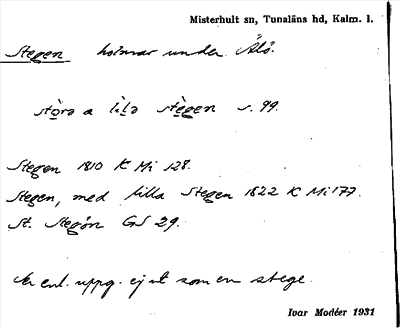 Misterhult sn, Tunaläns hd, Kalm. l.
Stegen holmar under Älö.
stòrə a lìlə stègen s. 99.
Stegen 1810 K Mi 128.
Stegen, med lilla Stegen 1822 K Mi 177.
St. Stegön GS 29.
Är enl. uppg. ej ut som en stege.
Ivar Modéer 1931